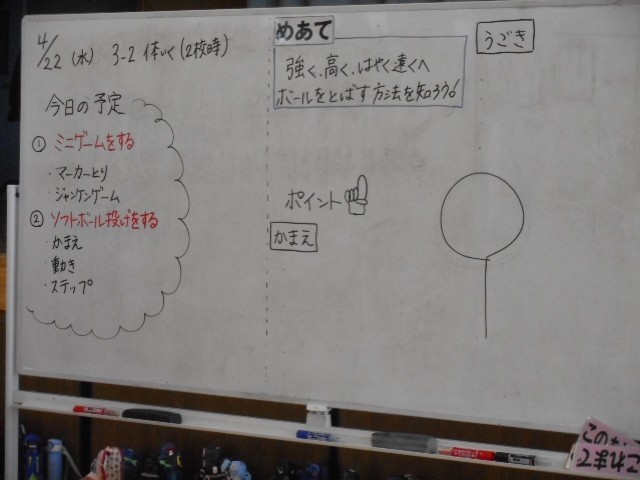 4/22 (水) 3-2 体いく(2校時)
今日の予定
① ミニゲームをする
・マーカーとり
・ジャンケンゲーム
② ソフトボール投げをする
・かまえ
・動き
・ステップ
めあて
強く、高く、はやく遠くへ
ボールをとばす方法を知ろう。
ポイント
かまえ
うごき